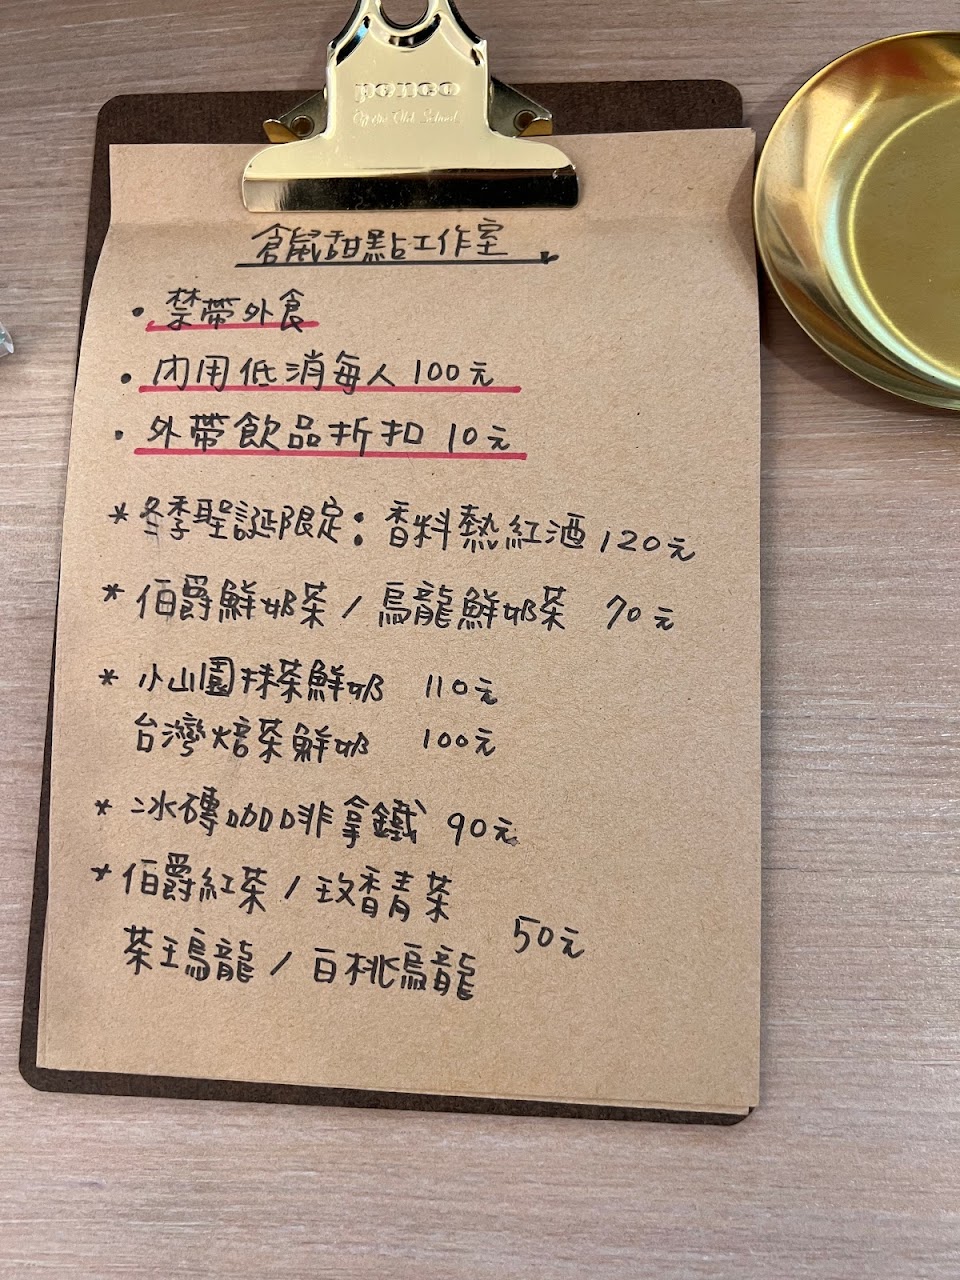 penco
倉鼠甜點工作室
・禁帶外食
・內用低消每人100元
・外帶飲品折扣 10元
*冬季聖誕限定：香料熱紅酒 120元
*伯爵鮮奶茶 / 烏龍鮮奶茶 70元
*小山園抹茶鮮奶 110元
台灣焙茶鮮奶 100元
*冰磚咖啡拿鐵 90元
*伯爵紅茶 / 玫香青茶
50元
茶王烏龍 / 白桃烏龍